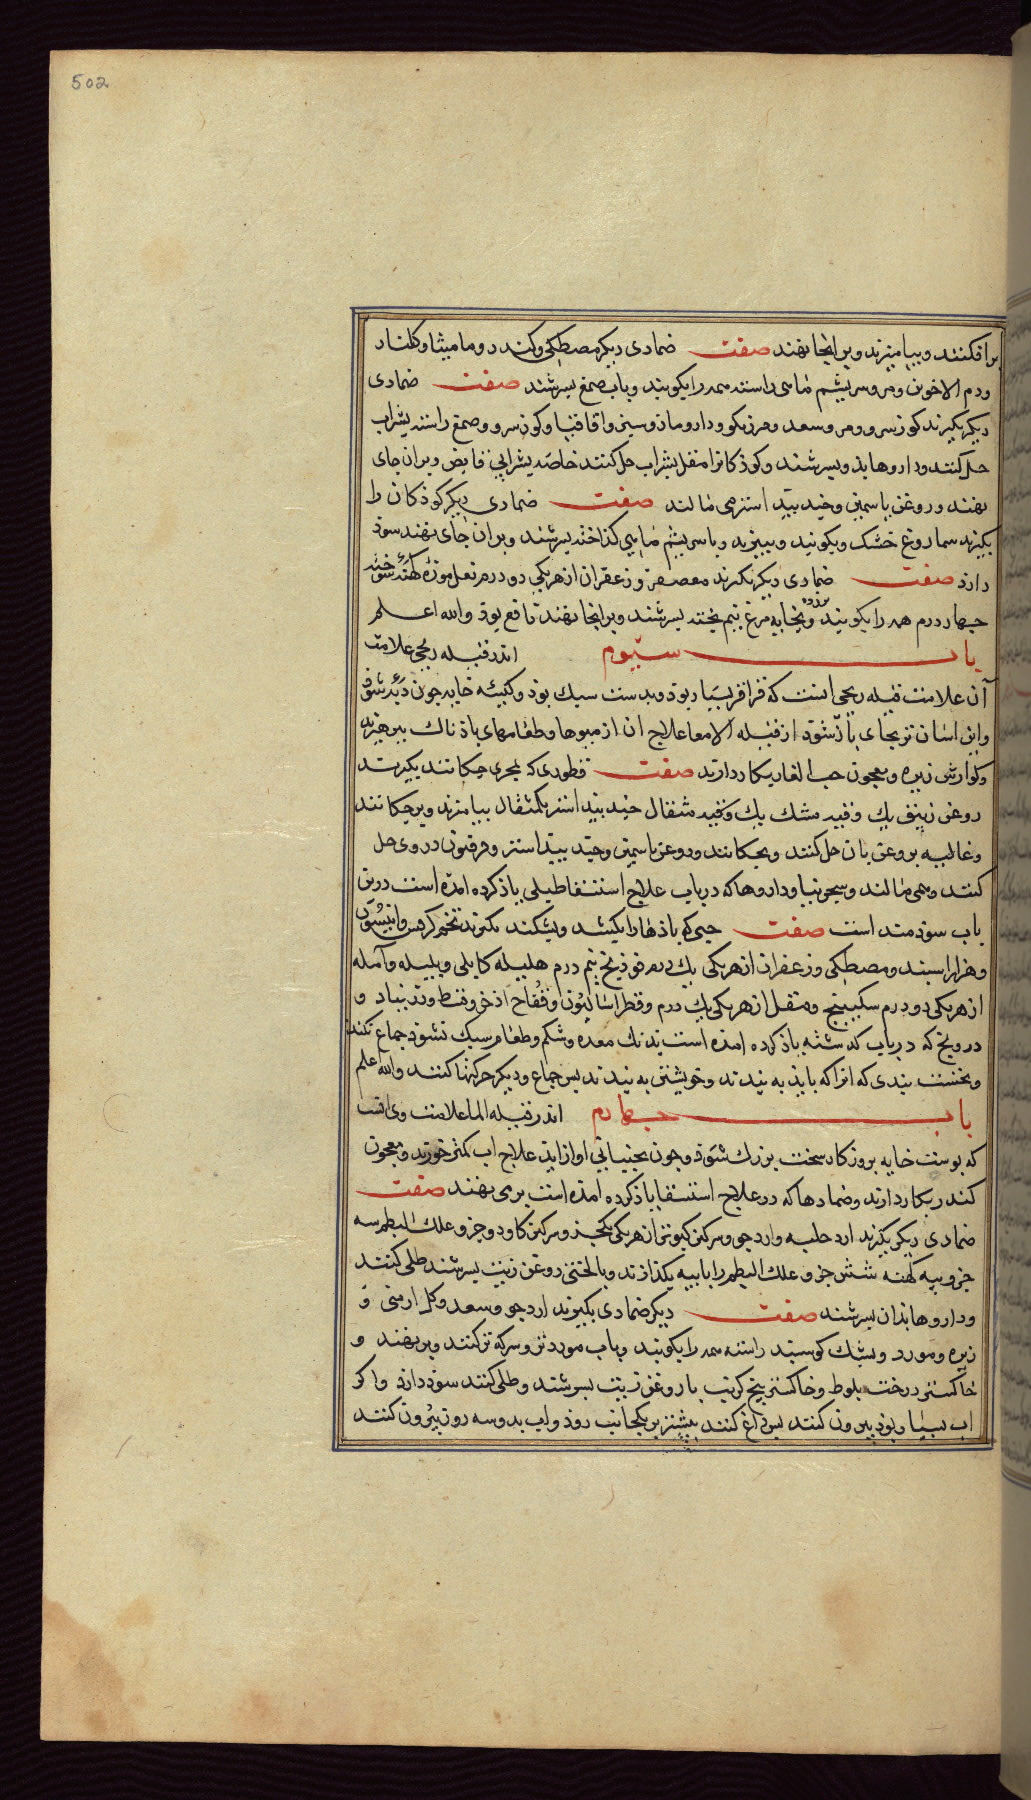 502
برافکنند وبیامیزند وبر انجا نهند صفت ضمادی دیکر مصطکی وکندر ومامیثا وکلنار
ودم الاخوین ومر وسریشم ماهی راستد همه را بکوبند وباب صمغ بسرشند صفت ضمادی
دیکر بکیرند کوز سرو ومر وسعد ومرزنکو ودار ومازو سبز واقاقیا وکوز سرو وصمغ راستد بشراب
حل کنند وداروها بذو بسرشند وکوذکانرا مقل بشراب حل کنند خاصه بشرابی قابض وبران جای
نهند وروغن یاسمین وجند بید استر می مالند صفت ضمادی دیکر کوذکان را
بکیرند سماروغ خشک وبکوبند وببیزند وباسریشم ماهی کداخته بسرشند وبران جای نهند سوذ
دارذ صفت ضمادی دیکر بکیرند معصفر وزعفران از هریکی دو درم نعل موزه کهنه سوخته
جهار درم همه را بکوبند وبخایه مرغ نیم بخته بسرشند وبر انجا نهند نافع بوذ والله اعلم
باب سیوم اندر قیله ریحی علامت
آن علامت قیله ریحی انست که قراقر بسیار بوذ وبدست سبک بوذ وکیسه خایه جون
واین اسان تر بجای باز شوذ از قیله الامعا علاج ان از میوها وطعامهای باذناک ببرهیزند
وکوارش زیره ومعجون حب الغار بکار دارند صفت قطوری که بمجری جکانند بکیرند
روغن زنبق یک وقیه مشک یک وقیه مثقال جند بید استر یکمثقال بیامیزند وبرجکانند
وغالیه بروغن بان حل کنند وبجکانند وروغن یاسمین وجند بید استر وفرفیون در وی حل
کنند وهمی مالند وسجزنیا وداروها که در باب علاج استسقا طبلی یاذ کرده امده است درین
باب سوذمند است صفت حبی که باذها را بکشد وبشکند بکیرند تخم کرفس وانیسون
وهزار اسبند ومصطکی وزعفران از هریکی یک درم فوذنج نیم درم هلیله کابلی وبلیله وآمله
از هریکی دو درم سکبینج ومقل از هریکی یک درم وقطراسالیون وفقاح اذخر وقسط وزرنباد و
درونج که در باب کذشته یاذ کرده امذه است بذنک معده وشکم وطعام سبک نشوذ جماع نکند
ونخست بندی که انرا که بایذ به بندند وخویشتن به بندند بس جماع ودیکر حرکتها کنند والله اعلم
باب جهارم اندر قیله الما علامت وی انست
که بوست خایه بروزکار سخت بزرک شوذ وجون بجنبانی اواز ایذ علاج اب کمتر خورند ومعجون
کندر بکار دارند وضمادها که در علاج استسقا یاذ کرده امذه است برمی نهند صفت
ضمادی دیکر بکیرند ارد حلبه وارد جو وسرکین کبوتر از هریکی یکجزو سرکین کاو دو جزو علک البطم سه
جزو بیه کهنه شش جزو علک البطم را با بیه بکذازند وبا لختی روغن زیت بسرشند طلی کنند
وداروها بذان بسرشند صفت دیکر ضمادی بکیرند ارد جو وسعد وکل ارمنی و
زیره ومورد وبشک کوسبند راستد همه را بکوبند وباب مورد تر وسرکه تر کنند وبرنهند و
خاکستر درخت بلوط وخاکستر بیخ کرنب با روغن زیت بسرشند وطلی کنند سوذ دارذ واکر
اب بسیار بوذ بیرون کنند بس داغ کنند بیشتر بر یکجانب روذ واب بدو سه روز بیرون کنند